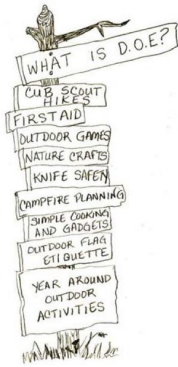 WHAT IS D.O.E?
CUB SCOUT
HIKES
FIRST AID
OUTDOOR GAMES
NATURE CRAFTS
KNIFE SAFETY
CAMPFIRE PLANNING
SIMPLE COOKING
AND GADGETS
OUTDOOR FLAG
ETIQUETTE
YEAR AROUND
OUTDOOR
ACTIVITIES